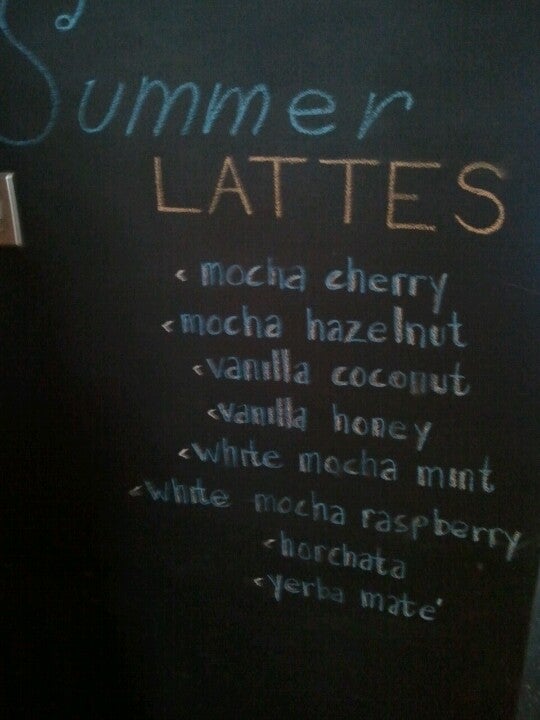 Summer
LATTES
< mocha cherry
< mocha hazelnut
< vanilla coconut
< vanilla honey
< white mocha mint
< white mocha raspberry
< horchata
< yerba maté